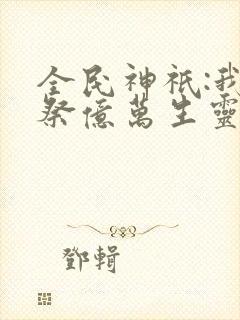 全民神祇:我
祭億萬生靈
鄧輯